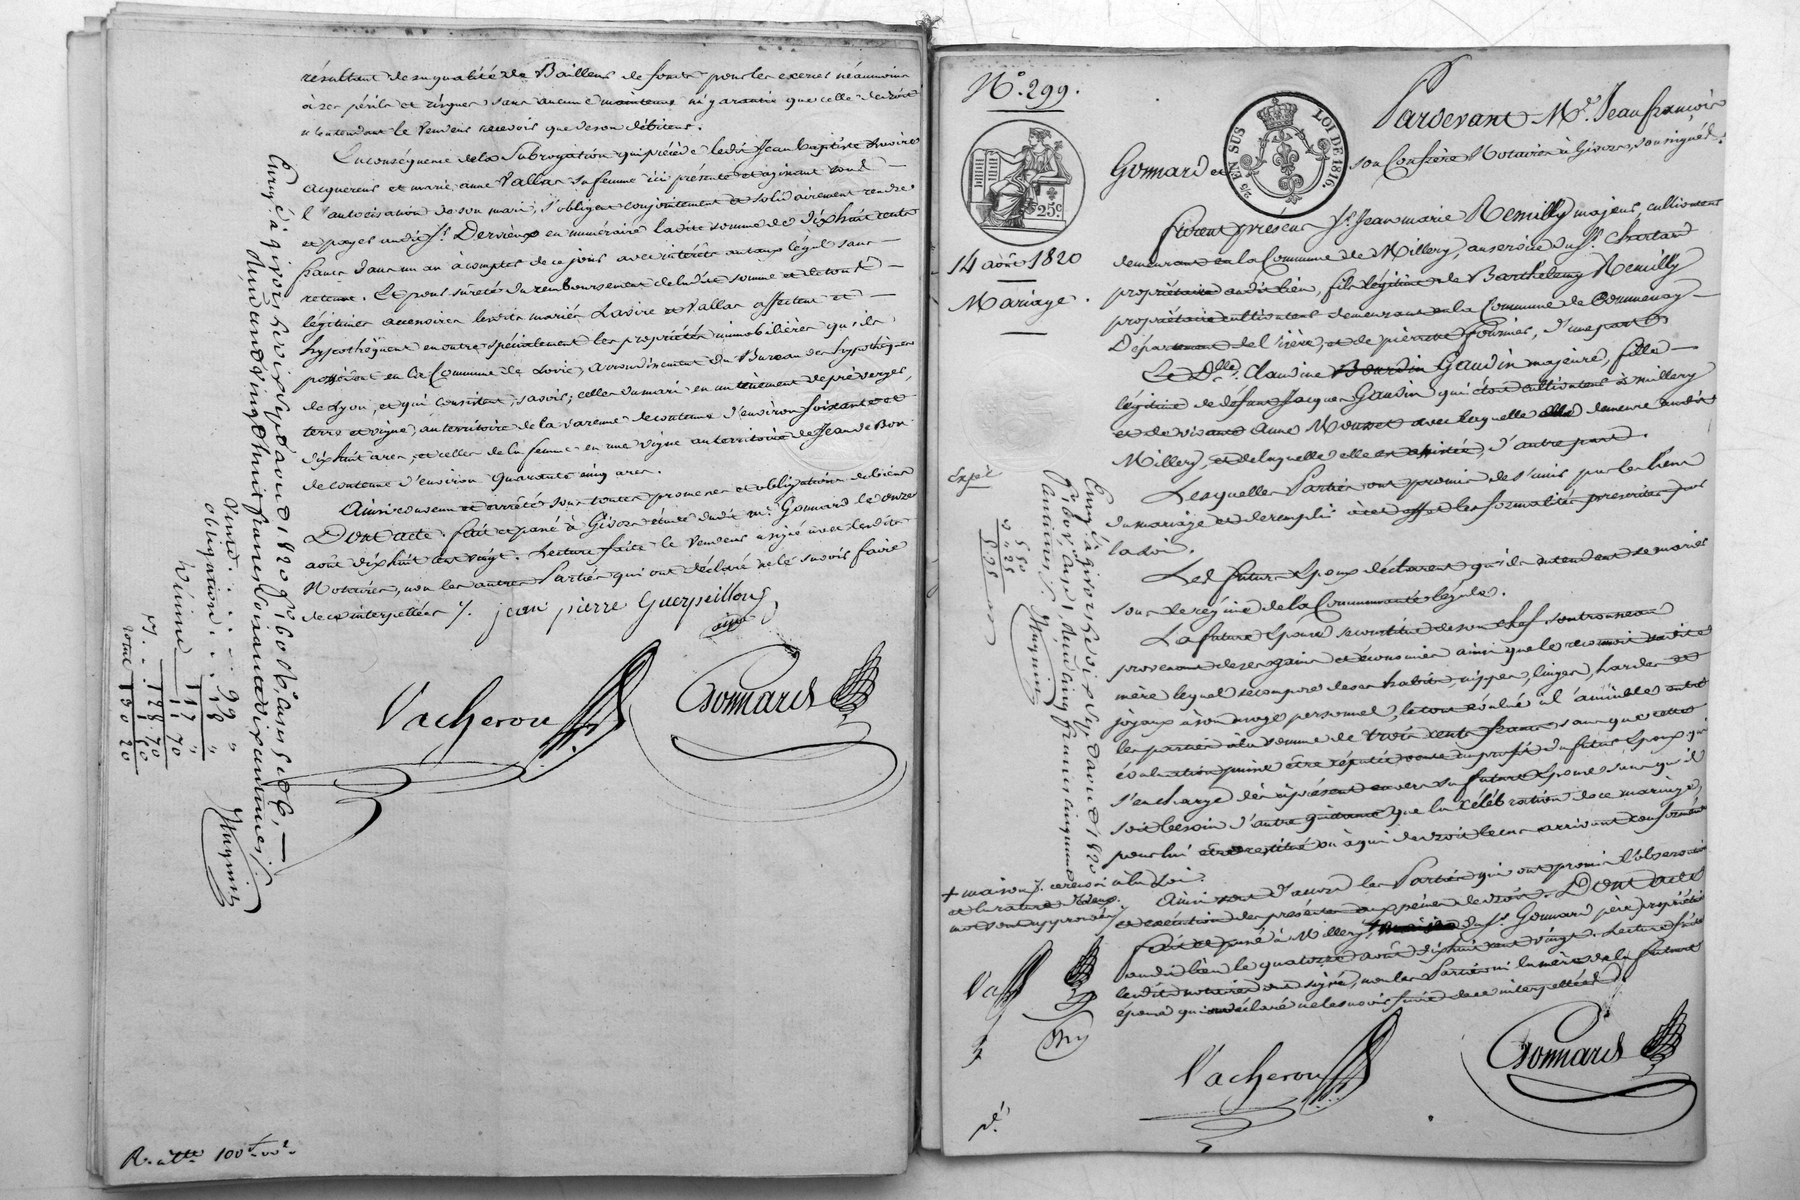 résultant de sa qualité de Bailleur de fonds pour les exercer néanmoins
à ses périls et risques sans aucune maintenue ni garantie que celle
le Vendeur recevoir que de son débiteur.
En conséquence de la Subrogation qui précède ledit Jean baptiste
acquereur et marie anne Vallas sa femme ici présente et agissant sous
l'autorisation de son mari, s'obligent conjointement et solidairement rendre
et payer audit Sr. Dervieux en numéraire ladite somme de dix huit cents
francs dans un an à compter de ce jour avec intérêts au taux légal sans
retenue. Et pour sûreté du remboursement de ladite somme et de tous
légitimes accessoires lesdits mariés et Vallas affectent et
hypothèquent en outre spécialement les propriétés immobilières qu'ils
possèdent en la Commune de arrondissement du Bureau des hypothèques
de Lyon, et qui consistent, savoir; celles du mari en un tènement de pré verger,
terre et vigne, au territoire de la varenne de contenue d'environ soixante et
dix huit ares, et celles de la femme en une vigne au territoire de
de contenue d'environ quarante cinq ares.
Ainsi convenu et arrêté sous toutes promesses et obligations de biens
Dont acte. fait et passé à Givors étude dudit Me. Gonnard le onze
août dix huit cent vingt. Lecture faite le Vendeur a signé avec lesdits
Notaires, non les autres Parties qui ont déclaré ne le savoir faire
de ce interpellées /.
jean pierre Guerpillon
Vacheron
Gonnard
Enreg.é à givors le dix sept août 1820
deux cent vingt huit francs soixante dix centimes /.
Vente . . . . 99 "
obligation . . 18 "
117 "
Dixième 11 70
128 70
R. . . 1 50
Total 130 20
R. 100f. 00c.
N.° 299.
25c
14 août 1820
Mariage.
EN SUS
LOI DE 1816.
Pardevant Me. Jean françois
Gonnard et son Confrère Notaires à Givors, soussignés.
furent présens Sr. Jean marie Remilly majeur cultivateur
demeurant en la Commune de Millery, au service du Sr. Chartar
propriétaire audit lieu, fils légitime de Barthelemy Remilly
propriétaire cultivateur demeurant en la Commune de Communay
Département de l'isère, et de pierrette fournier, d'une part
Et Dlle. Claudine Bourdin Gaudin majeure, fille
légitime de defunt Jacques Gaudin qui étoit cultivateur à millery
et de vivante Anne Mousset avec laquelle elle demeure audit
Millery, et de laquelle elle est assistée, d'autre part.
Lesquelles Parties ont promis de s'unir par les liens
du mariage et de remplir à cet effet les formalités prescrites par
la loi.
Les futurs Epoux déclarent qu'ils entendent se marier
sous le régime de la Communauté légale.
La future Epouse se constitue de son chef son trousseau
provenant de ses gains et économies ainsi que le reconnoit sadite
mère lequel se compose de ses habits, nippes, linges, hardes et
joyaux à son usage personnel, le tout évalué à l'amiable entre
les parties à la somme de trois cents francs sans que cette
évaluation puisse être réputée vente au profit du futur Epoux qui
s'en charge dès à présent envers sa future Epouse sans qu'il
soit besoin d'autre quittance que la célébration de ce mariage,
pour lui être restitué ou à qui de droit le cas arrivant conformément
à la Loi.
Ainsi sont d'accord les Parties qui ont promis l'observation
et exécution des présentes aux peines de droit. Dont acte
fait et passé à Millery, du Sr. Gonnard père propriétaire
audit lieu le quatorze août dix huit cent vingt. Lecture faite
lesdits notaires ont signé, non les Parties ni la mère de la future
épouse qui ont déclaré ne le savoir faire de ce interpellées.
Vacheron
Gonnard
Expé.
5 50
" 55
Enreg.é à givors le dix sept août 1820
centimes /.
+ maison /.
et la rature de deux
mots est approuvée /.